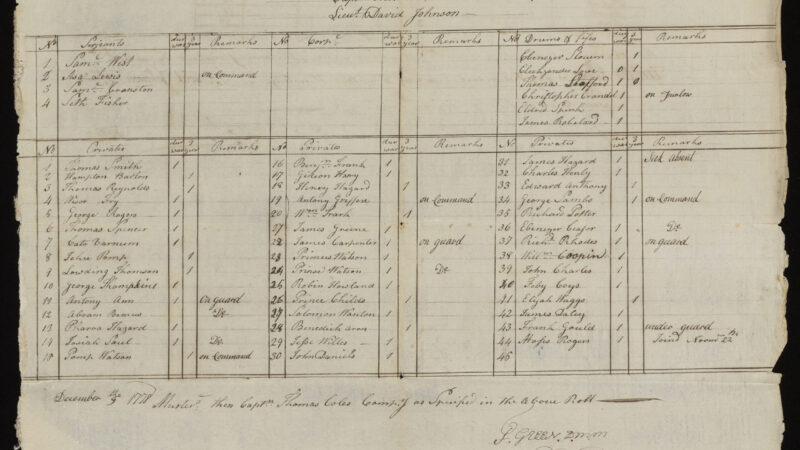 Lieut. David Johnson
No Serjeants dur war 3 year Remarks No Corpl. dur war 3 year Remarks No Drums & Fifes dur war 3 year Remarks
1 Saml. West Ebenezer Slocum 1
2 Lewis on Command 0 1
3 Saml. Cranston Thomas Stafford 1 0
4 Seth Fisher Christopher 1 on Furlow
Eldred 1
James 1
No Privates dur war 3 year Remarks No Privates dur war 3 year Remarks No Privates dur war 3 year Remarks
1 Thomas Smith 1 16 Benjn. Frank 1 31 James Hazard 1 Sick absent
2 Hampton Barton 1 17 Gideon 1 32 Charles Henly 1
3 Thomas Reynolds 1 18 Henry Hazard 1 33 Edward Anthony 1
4 1 19 Antony Griffen 1 on Command 34 George Sambo 1 on Command
5 George Rogers 1 20 Wm. Frank 1 35 Richard Potter 1
6 Thomas Spencer 1 21 James Greene 1 36 Ebenezer Ceasor 1 Do
7 Cato Varnum 1 22 James Carpenter 1 on guard 37 Richd. Rhodes 1 on guard
8 1 23 Primus Watson 1 38 Willm. Coopin 1
9 Thomson 1 24 Prince Watson 1 Do 39 John Charles 1
10 George Thompkins 1 25 Robin Howland 1 40 Toby Coys 1
11 Antony 1 on guard 26 Prince Childs 1 41 Elijah 1
12 Abram 1 Do 27 Solomon Wanton 1 42 James Daley 1
13 Pharoa Hazard 1 28 Benedick Aron 1 43 Frank Gould 1 under guard
14 Josiah Saul 1 Do 29 Jesse Willis 1 44 Hosps Rogers 1 Joind Novmr. 22
15 Pomp Watson 1 on Command 30 John Daniels 1 45
December 1778 Musterd. then Captn. Thomas Coles Compy as Specified in the above Roll
GREEN D.M.M